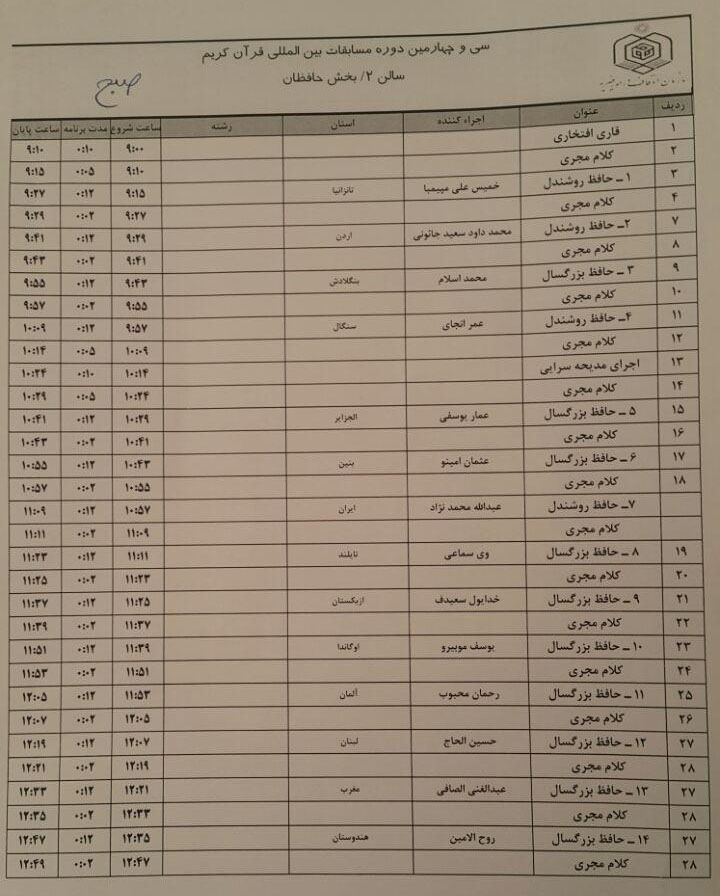 سی و چهارمین دوره مسابقات بین المللی قرآن کریم
سالن ۲/ بخش حافظان
صبح
ردیف عنوان اجراء کننده استان رشته ساعت شروع مدت برنامه ساعت پایان
۱ قاری افتخاری ۹:۰۰ ۰:۱۰ ۹:۱۰
۲ کلام مجری ۹:۱۰ ۰:۰۵ ۹:۱۵
۳ ۱ ــ حافظ روشندل خمیس علی مپیمبا تانزانیا ۹:۱۵ ۰:۱۲ ۹:۲۷
۴ کلام مجری ۹:۲۷ ۰:۰۲ ۹:۲۹
۷ ۲ــ حافظ روشندل محمد داود سعید جاتونی اردن ۹:۲۹ ۰:۱۲ ۹:۴۱
۸ کلام مجری ۹:۴۱ ۰:۰۲ ۹:۴۳
۹ ۳ ــ حافظ بزرگسال محمد اسلام بنگلادش ۹:۴۳ ۰:۱۲ ۹:۵۵
۱۰ کلام مجری ۹:۵۵ ۰:۰۲ ۹:۵۷
۱۱ ۴ــ حافظ روشندل عمر انجای سنگال ۹:۵۷ ۰:۱۲ ۱۰:۰۹
۱۲ کلام مجری ۱۰:۰۹ ۰:۰۵ ۱۰:۱۴
۱۳ اجرای مدیحه سرایی ۱۰:۱۴ ۰:۱۰ ۱۰:۲۴
۱۴ کلام مجری ۱۰:۲۴ ۰:۰۵ ۱۰:۲۹
۱۵ ۵ ــ حافظ بزرگسال عمار یوسفی الجزایر ۱۰:۲۹ ۰:۱۲ ۱۰:۴۱
۱۶ کلام مجری ۱۰:۴۱ ۰:۰۲ ۱۰:۴۳
۱۷ ۶ ــ حافظ بزرگسال عثمان امینو بنین ۱۰:۴۳ ۰:۱۲ ۱۰:۵۵
۱۸ کلام مجری ۱۰:۵۵ ۰:۰۲ ۱۰:۵۷
۷ــ حافظ روشندل عبدالله محمد نژاد ایران ۱۰:۵۷ ۰:۱۲ ۱۱:۰۹
کلام مجری ۱۱:۰۹ ۰:۰۲ ۱۱:۱۱
۱۹ ۸ ــ حافظ بزرگسال وی سماعی تایلند ۱۱:۱۱ ۰:۱۲ ۱۱:۲۳
۲۰ کلام مجری ۱۱:۲۳ ۰:۰۲ ۱۱:۲۵
۲۱ ۹ ــ حافظ بزرگسال خدایول سعیدف ازبکستان ۱۱:۲۵ ۰:۱۲ ۱۱:۳۷
۲۲ کلام مجری ۱۱:۳۷ ۰:۰۲ ۱۱:۳۹
۲۳ ۱۰ ــ حافظ بزرگسال یوسف موبیرو اوگاندا ۱۱:۳۹ ۰:۱۲ ۱۱:۵۱
۲۴ کلام مجری ۱۱:۵۱ ۰:۰۲ ۱۱:۵۳
۲۵ ۱۱ ــ حافظ بزرگسال رحمان محبوب آلمان ۱۱:۵۳ ۰:۱۲ ۱۲:۰۵
۲۶ کلام مجری ۱۲:۰۵ ۰:۰۲ ۱۲:۰۷
۲۷ ۱۲ ــ حافظ بزرگسال حسین الحاج لبنان ۱۲:۰۷ ۰:۱۲ ۱۲:۱۹
۲۸ کلام مجری ۱۲:۱۹ ۰:۰۲ ۱۲:۲۱
۲۷ ۱۳ ــ حافظ بزرگسال عبدالغنی الصافی مغرب ۱۲:۲۱ ۰:۱۲ ۱۲:۳۳
۲۸ کلام مجری ۱۲:۳۳ ۰:۰۲ ۱۲:۳۵
۲۷ ۱۴ ــ حافظ بزرگسال روح الامین هندوستان ۱۲:۳۵ ۰:۱۲ ۱۲:۴۷
۲۸ کلام مجری ۱۲:۴۷ ۰:۰۲ ۱۲:۴۹